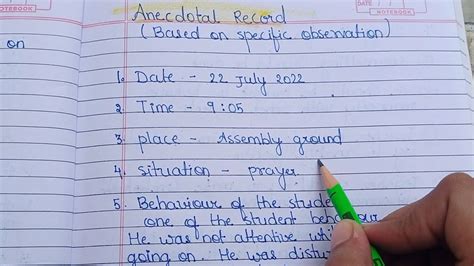 NOTEBOOK
NOTEBOOK
Anecdotal Record
(Based on specific observation)
on
1. Date - 22 July 2022
2. Time - 9:05
3. place - Assembly ground
4. situation - prayer
5. Behaviour of the stude
one of the student behaviour
He was not attentive whil
going on. He was distu